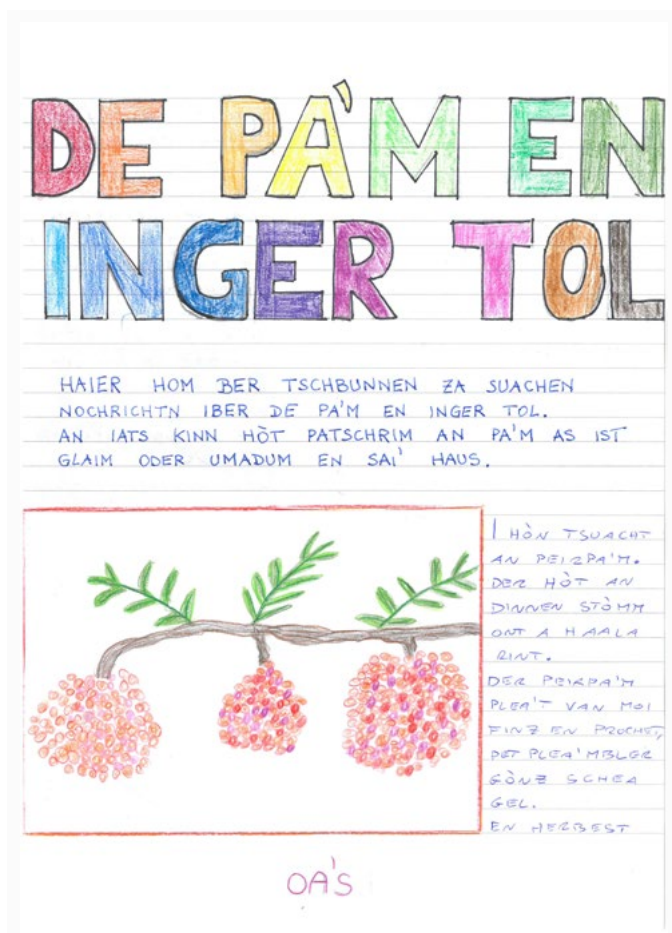 DE PA'M EN
INGER TOL
HAIER HOM BER TSCHBUNNEN ZA SUACHEN
NOCHRICHTN IBER DE PA'M EN INGER TOL.
AN IATS KINN HÒT PATSCHRIM AN PA'M AS IST
GLAIM ODER UMADUM EN SAI' HAUS.
I HÒN TSUACHT
AN PEIRPA'M.
DER HÒT AN
DINNEN STÒMM
ONT A HAALA
RINT.
DER PEIRPA'M
PLEA'T VAN MOI
FINZ EN PROCHET,
PET PLEA'MBLER
GÒNZ SCHEA
GEL.
EN HERBEST
OA'S